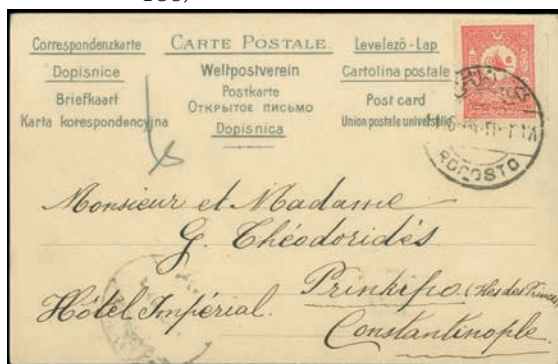 Correspondenzkarte
Dopisnice
Briefkaart
Karta korespondencyjna
CARTE POSTALE.
Weltpostverein
Postkarte
ОТКРЫТОЕ ПИСЬМО
Dopisnica
Levelező-Lap
Cartolina postale
Post card
Union postale universelle
RODOSTO
Monsieur et Madame
G. Théodoridés
Hôtel Impérial. Prinkipo. (Iles des Princes)
Constantinople